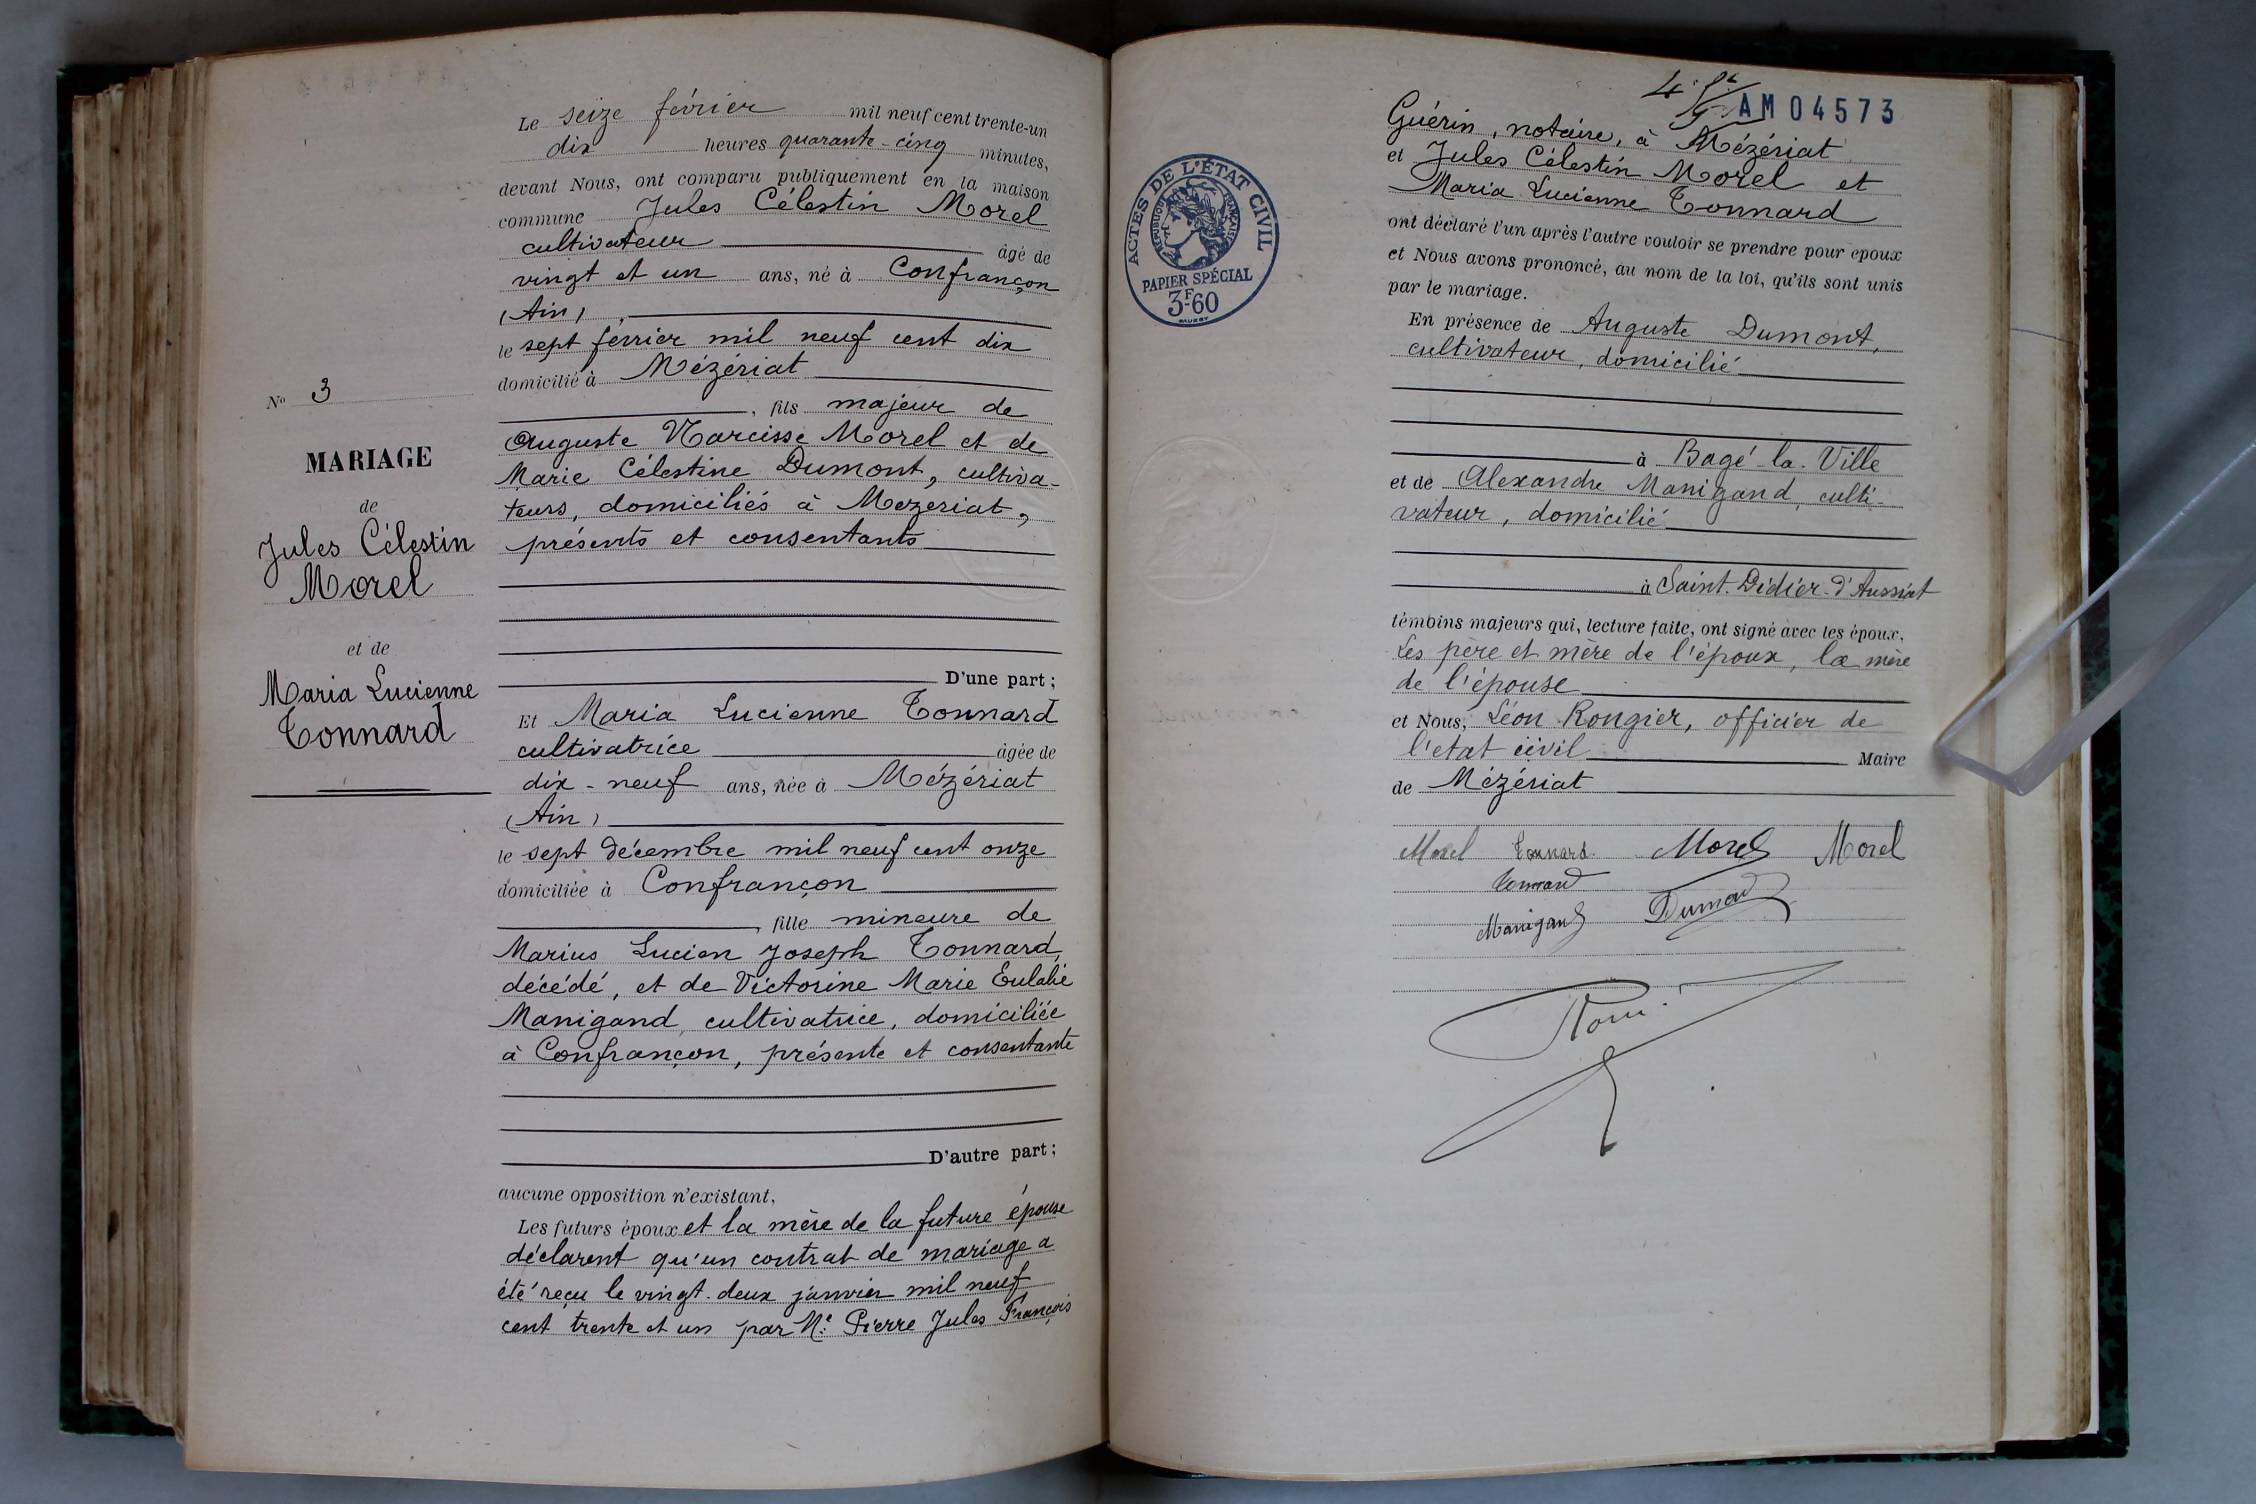 Le seize février mil neuf cent trente-un
dix heures quarante-cinq minutes,
devant Nous, ont comparu publiquement en la maison
commune Jules Célestin Morel
cultivateur âgé de
vingt et un ans, né à Confrançon
(Ain),
le sept février mil neuf cent dix
domicilié à Mézériat
, fils majeur de
Auguste Narcisse Morel et de
Marie Célestine Dumont, cultiva-
teurs, domiciliés à Mezeriat,
présents et consentants
D'une part;
Et Maria Lucienne Tonnard
cultivatrice âgée de
dix-neuf ans, née à Mézériat
(Ain)
le sept décembre mil neuf cent onze
domiciliée à Confrançon
, fille mineure de
Marius Lucien Joseph Tonnard,
décédé, et de Victorine Marie Eulalie
Manigand, cultivatrice, domiciliée
à Confrançon, présente et consentante
D'autre part;
aucune opposition n'existant,
Les futurs époux et la mère de la future épouse
déclarent qu'un contrat de mariage a
été reçu le vingt-deux janvier mil neuf
cent trente et un par Me Pierre Jules François
No 3
MARIAGE
de
Jules Célestin
Morel
et de
Maria Lucienne
Tonnard
AM04573
Guérin, notaire, à Mézériat
et Jules Célestin Morel et
Maria Lucienne Tonnard
ont déclaré l'un après l'autre vouloir se prendre pour époux
et Nous avons prononcé, au nom de la loi, qu'ils sont unis
par le mariage.
En présence de Auguste Dumont,
cultivateur, domicilié
à Bagé-la-Ville
et de Alexandre Manigand, culti-
vateur, domicilié
à Saint-Didier-d'Aussiat
témoins majeurs qui, lecture faite, ont signé avec les époux,
Les père et mère de l'époux, la mère
de l'épouse
et Nous, Léon Rongier, officier de
l'etat civil Maire
de Mézériat
Morel Tonnard Morel Morel
Tonnard
Manigand Dumont
ACTES DE L'ÉTAT CIVIL
RÉPUBLIQUE FRANÇAISE
PAPIER SPÉCIAL
3F60